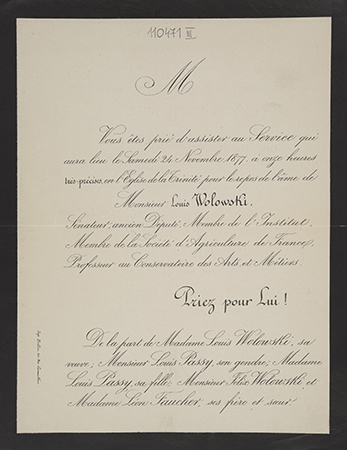 110471 III
M
Vous êtes prié d'assister au Service qui
aura lieu le Samedi 24 Novembre 1877 à onze heures
très-précises, en l'Eglise de la Trinité pour le repos de l'âme de
Monsieur Louis Wolowski,
Sénateur, ancien Député, Membre de l'Institut,
Membre de la Société d'Agriculture de France,
Professeur au Conservatoire des Arts et Métiers.
Priez pour Lui!
De la part de Madame Louis Wolowski, sa
veuve; Monsieur Louis Passy, son gendre; Madame
Louis Passy, sa fille; Monsieur Félix Wolowski et
Madame Léon Faucher, ses frère et sœur.